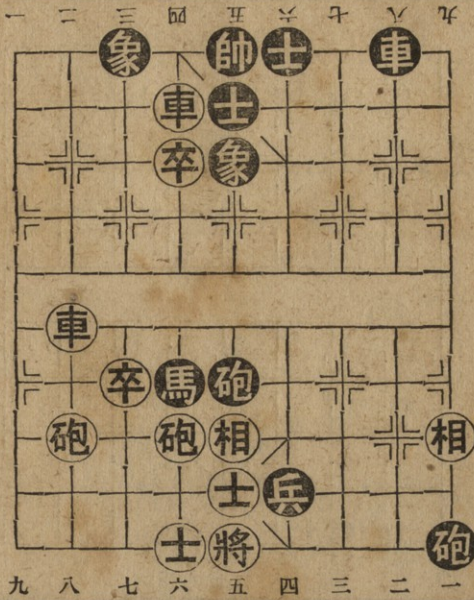 一 二 三 四 五 六 七 八 九
象 帥 士 車
車 士
卒 象
車
卒 馬 砲
砲 砲 相 相
士 兵
士 將 砲
九 八 七 六 五 四 三 二 一